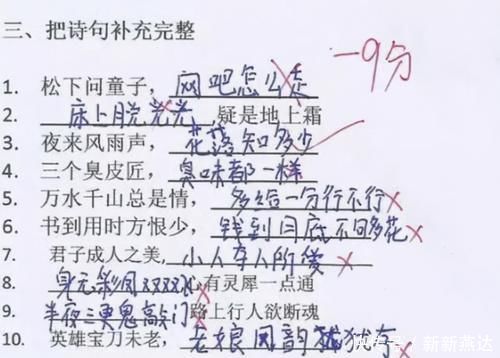 三、把诗句补充完整
-9分
1. 松下问童子，网吧怎么走
2. 床上脱光光,疑是地上霜
3. 夜来风雨声，花落知多少
4. 三个臭皮匠，臭味都一样
5. 万水千山总是情，多给一分行不行
6. 书到用时方恨少，钱到月底不够花
7. 君子成人之美,小人夺人所爱
8. 身无彩凤双飞翼心有灵犀一点通
9. 半夜三更鬼敲门路上行人欲断魂
10. 英雄宝刀未老，老娘风韵犹存
快资讯@新新燕达